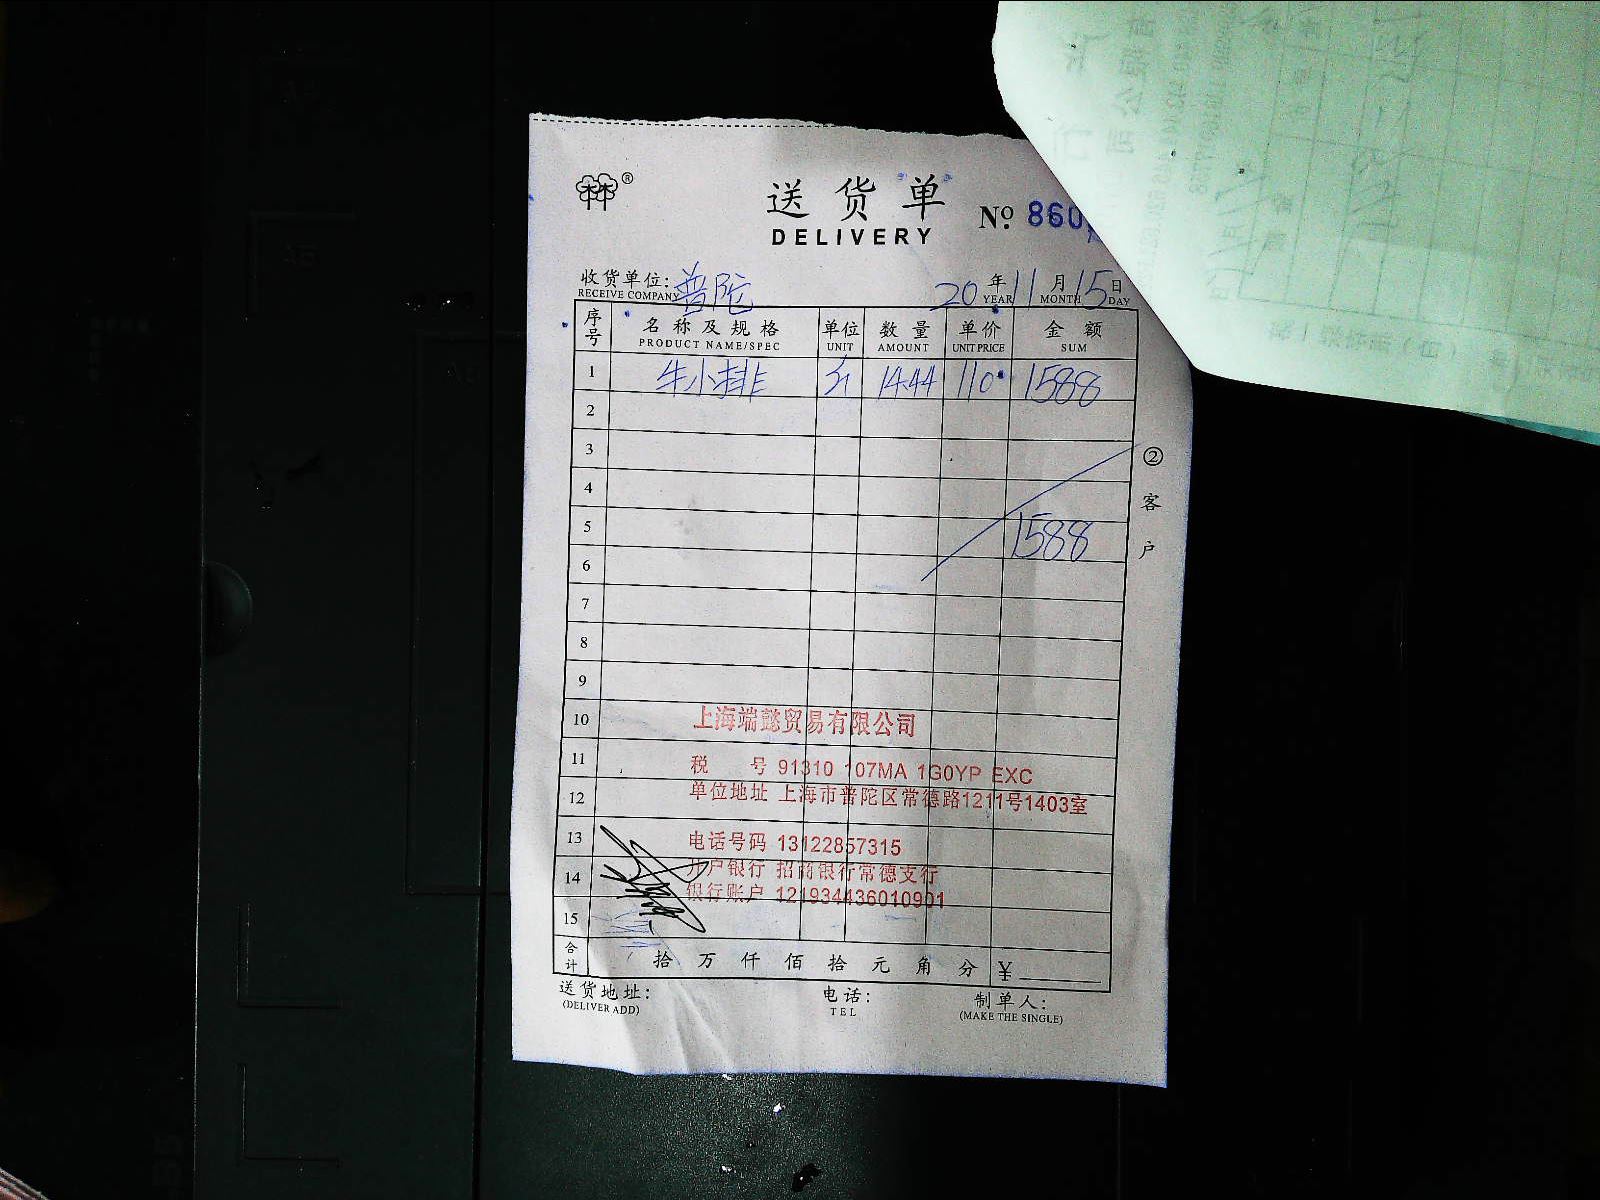 ®
送货单
DELIVERY
№ 860
收货单位: 普陀 20 年 11 月 15 日
RECEIVE COMPANY YEAR MONTH DAY
序号 名称及规格 单位 数量 单价 金额
PRODUCT NAME/SPEC UNIT AMOUNT UNIT PRICE SUM
1 牛小排 14.44 110 1588
2
3
4
5 1588
6
7
8
9
10
11
12
13
14
15
② 客户
上海端懿贸易有限公司
税 号 91310 107MA 1G0YP EXC
单位地址 上海市普陀区常德路1211号1403室
电话号码 13122857315
开户银行 招商银行常德支行
银行账户 121934436010901
合计 拾 万 仟 佰 拾 元 角 分 ¥
送货地址: 电话: 制单人:
(DELIVER ADD) TEL (MAKE THE SINGLE)